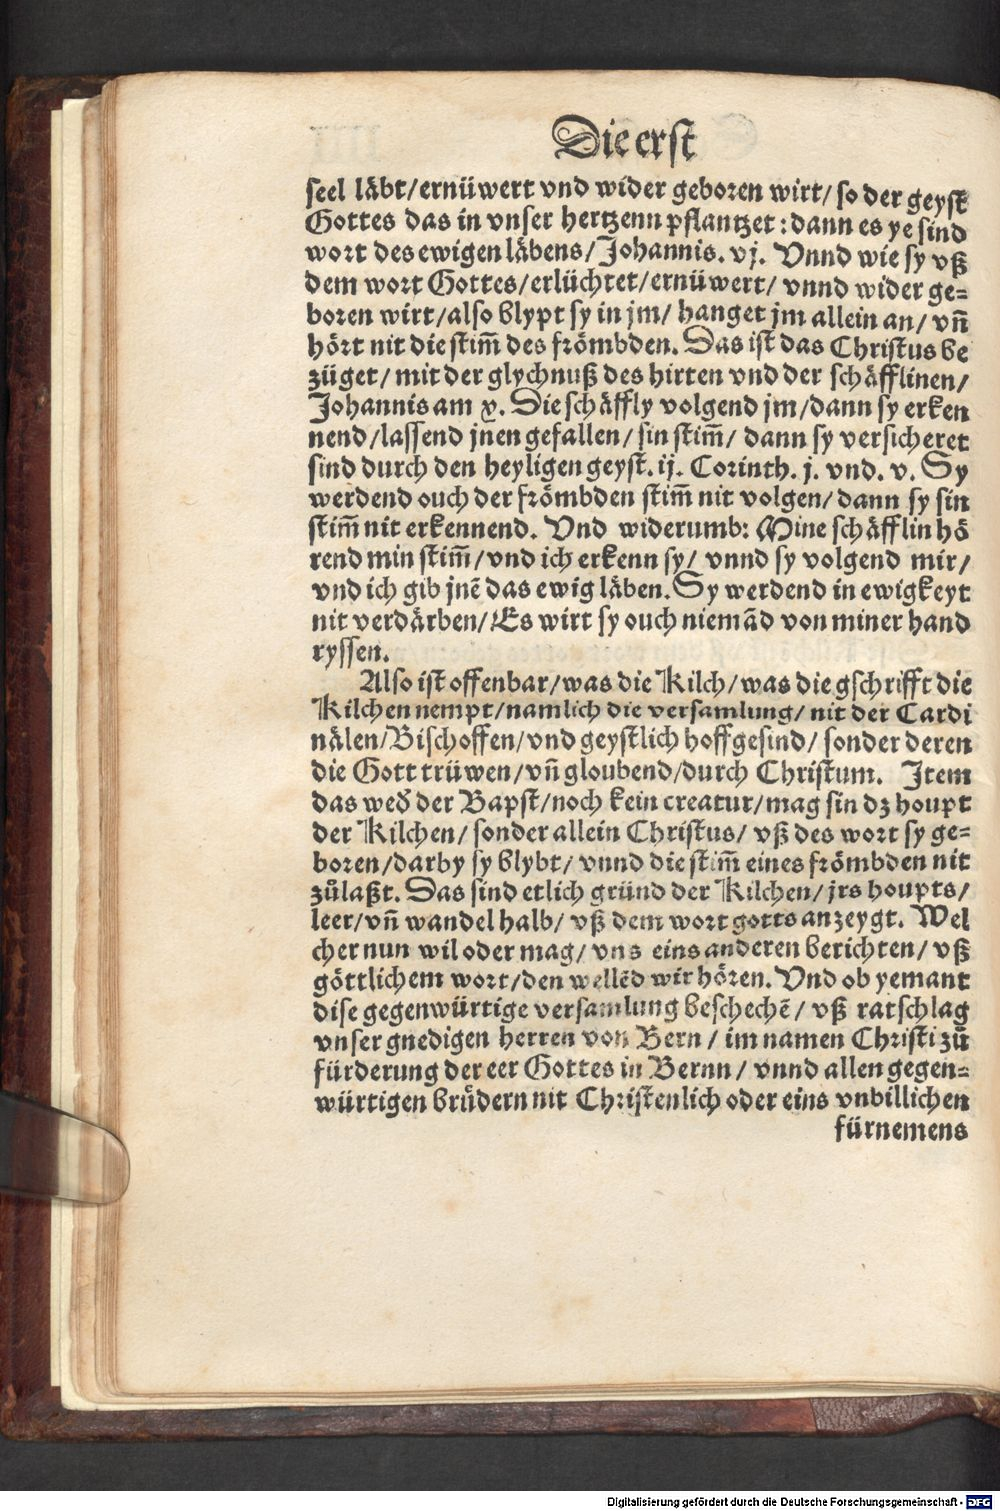 Die erst
seel läbt/ernüwert vnd wider geboren wirt/so der geyst
Gottes das in vnser hertzenn pflantzet: dann es ye sind
wort des ewigen läbens/Johannis. vj. Vnnd wie sy vß
dem wort Gottes/erlüchtet/ernüwert/ vnnd wider ge=
boren wirt/also blypt sy in jm/ hanget jm allein an/ vñ
hört nit die stim̃ des frömbden. Das ist das Christus be
züget/ mit der glychnuß des hirten vnd der schäfflinen/
Johannis am x. Die schäffly volgend jm/dann sy erken
nend/lassend jnen gefallen/ sin stim̃/ dann sy versicheret
sind durch den heyligen geyst. ij. Corinth. j. vnd. v. Sy
werdend ouch der frömbden stim̃ nit volgen/dann sy sin
stim̃ nit erkennend. Vnd widerumb: Mine schäfflin hö
rend min stim̃/vnd ich erkenn sy/ vnnd sy volgend mir/
vnd ich gib jnẽ das ewig läben. Sy werdend in ewigkeyt
nit verdärben/Es wirt sy ouch niemãd von miner hand
ryssen.
Also ist offenbar/was die Kilch/was die gschrifft die
Kilchen nempt/namlich die versamlung/ nit der Cardi
nälen/Bischoffen/vnd geystlich hoffgesind/ sonder deren
die Gott trüwen/vñ gloubend/durch Christum. Item
das wed̃ der Bapst/noch kein creatur/mag sin dz houpt
der Kilchen/ sonder allein Christus/ vß des wort sy ge=
boren/darby sy blybt/ vnnd die stim̃ eines frömbden nit
zůlaßt. Das sind etlich gründ der Kilchen/jrs houpts/
leer/vñ wandel halb/ vß dem wort gotts anzeygt. Wel
cher nun wil oder mag/ vns eins anderen berichten/ vß
göttlichem wort/den wellẽd wir hören. Vnd ob yemant
dise gegenwürtige versamlung beschechẽ/ vß ratschlag
vnser gnedigen herren von Bern/ im namen Christi zů
fürderung der eer Gottes in Bernn/ vnnd allen gegen=
würtigen brüdern nit Christenlich oder eins vnbillichen
fürnemens
Digitalisierung gefördert durch die Deutsche Forschungsgemeinschaft - DFG